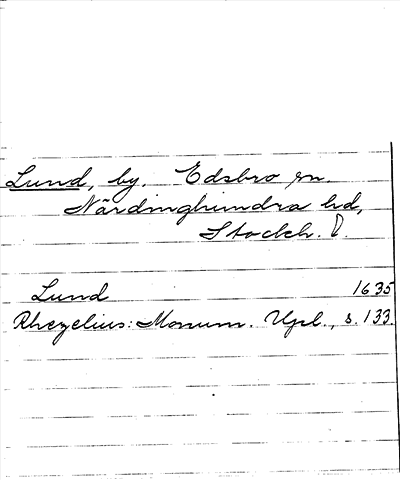 Lund, by. Edsbro sn.
Närdinghundra hd,
Stockh. l.
Lund 1635
Rhezelius: Monum. Upl., s. 133.